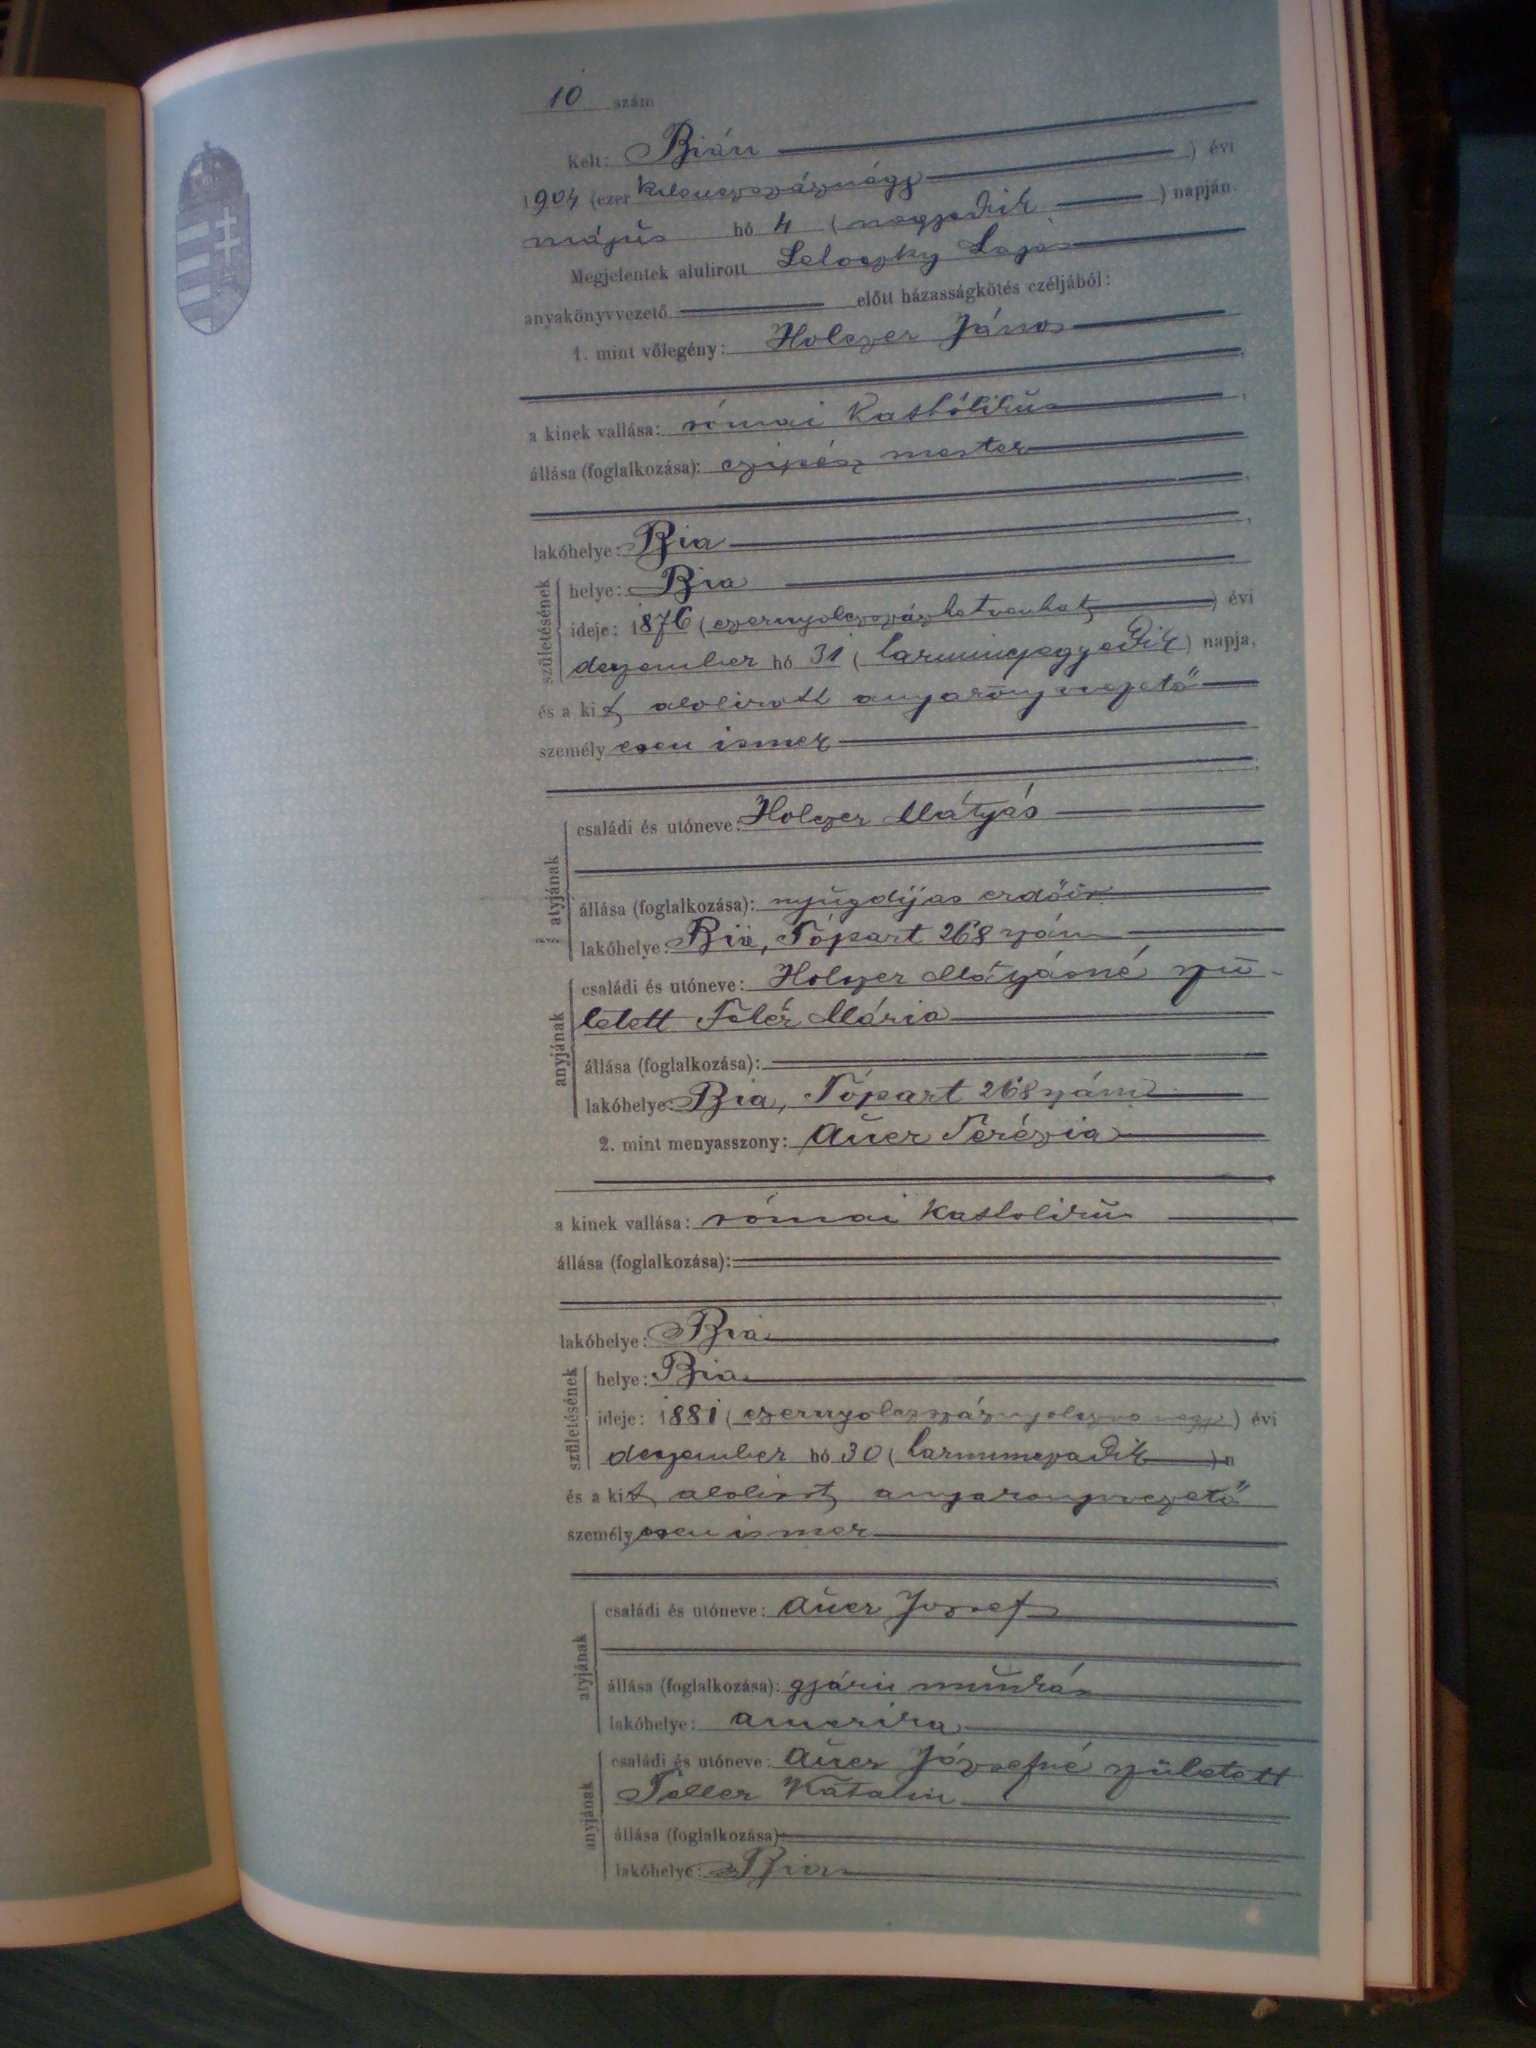 10 szám
Kelt: Bián
1904 (ezer kilenczszáznégy ) évi
május hó 4 (negyedik ) napján
Megjelentek alulirott Lajos
anyakönyvvezető előtt házasságkötés czéljából:
1. mint vőlegény: Holczer János
a kinek vallása: római Kathólikus
állása (foglalkozása): czipész mester
lakóhelye: Bia
születésének
helye: Bia
ideje: 1876 (ezernyolczszázhetvenhat ) évi
deczember hó 31 (harminczegyedik) napja,
és a kit alolirott anyakönyvvezető
személyesen ismer
atyjának
családi és utóneve: Holczer Mátyás
állása (foglalkozása): nyugdijas erdőőr
lakóhelye: Bia, Tópart 268 szám
anyjának
családi és utóneve: Holczer Mátyásné szü-
letett Mária
állása (foglalkozása):
lakóhelye: Bia, Tópart 268 szám
2. mint menyasszony: Auer Terézia
a kinek vallása: római Katholikus
állása (foglalkozása):
lakóhelye: Bia
születésének
helye: Bia
ideje: 1881 (ezernyolczszáznyolczvanegy) évi
deczember hó 30 (harminczadik ) n
és a kit alolirott anyakönyvvezető
személyesen ismer
atyjának
családi és utóneve: Auer József
állása (foglalkozása): gyári munkás
lakóhelye: Amerika
anyjának
családi és utóneve: Auer Józsefné született
Teller Katalin
állása (foglalkozása):
lakóhelye: Bia